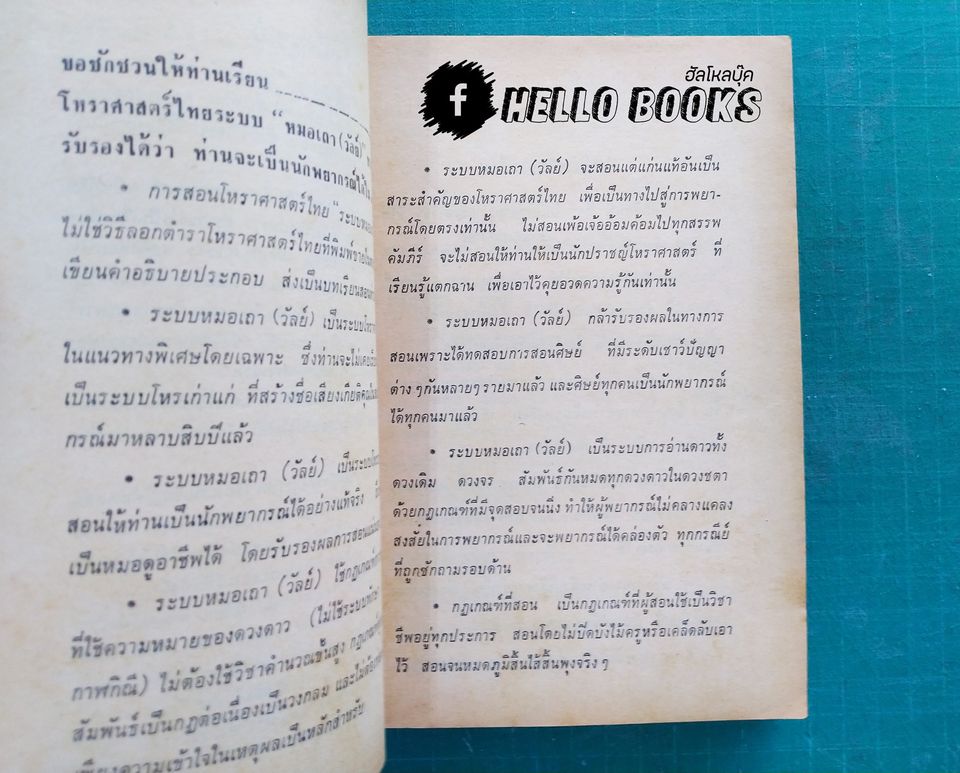 ขอชักชวนให้ท่านเรียน
โหราศาสตร์ไทยระบบ “หมอเถา (วัลย์)”
รับรองได้ว่า ท่านจะเป็นนักพยากรณ์ได้
• การสอนโหราศาสตร์ไทย “ระบบหมอ
ไม่ใช่วิธีลอกตำราโหราศาสตร์ไทยที่พิมพ์ขาย
เขียนคำอธิบายประกอบ ส่งเป็นบทเรียน
• ระบบหมอเถา (วัลย์) เป็นระบบ
ในแนวทางพิเศษโดยเฉพาะ ซึ่งท่านจะไม่เคย
เป็นระบบโหรเก่าแก่ ที่สร้างชื่อเสียงเกียรติคุณ
กรณ์มาหลาบสิบปีแล้ว
• ระบบหมอเถา (วัลย์) เป็นระบบ
สอนให้ท่านเป็นนักพยากรณ์ได้อย่างแท้จริง
เป็นหมอดูอาชีพได้ โดยรับรองผลการสอน
• ระบบหมอเถา (วัลย์) ใช้กฎเกณฑ์
ที่ใช้ความหมายของดวงดาว (ไม่ใช้ระบบ
กาฬกิณี) ไม่ต้องใช้วิชาคำนวณขั้นสูง
สัมพันธ์เป็นกฎต่อเนื่องเป็นวงกลม
เพียงความเข้าใจในเหตุผลเป็นหลักสำหรับ
ฮัลโหลบุ๊ค
f HELLO BOOKS
• ระบบหมอเถา (วัลย์) จะสอนแต่แก่นแท้อันเป็น
สาระสำคัญของโหราศาสตร์ไทย เพื่อเป็นทางไปสู่การพยา-
กรณ์โดยตรงเท่านั้น ไม่สอนเพ้อเจ้ออ้อมค้อมไปทุกสรรพ
คัมภีร์ จะไม่สอนให้ท่านให้เป็นนักปราชญ์โหราศาสตร์ ที่
เรียนรู้แตกฉาน เพื่อเอาไว้คุยอวดความรู้กันเท่านั้น
• ระบบหมอเถา (วัลย์) กล้ารับรองผลในทางการ
สอนเพราะได้ทดสอบการสอนศิษย์ ที่มีระดับเชาว์ปัญญา
ต่าง ๆ กันหลายๆ รายมาแล้ว และศิษย์ทุกคนเป็นนักพยากรณ์
ได้ทุกคนมาแล้ว
• ระบบหมอเถา (วัลย์) เป็นระบบการอ่านดาวทั้ง
ดวงเดิม ดวงจร สัมพันธ์กันหมดทุกดวงดาวในดวงชตา
ด้วยกฎเกณฑ์ที่มีจุดสอบจนนิ่ง ทำให้ผู้พยากรณ์ไม่คลางแคลง
สงสัยในการพยากรณ์และจะพยากรณ์ได้คล่องตัว ทุกกรณีย์
ที่ถูกซักถามรอบด้าน
• กฎเกณฑ์ที่สอน เป็นกฎเกณฑ์ที่ผู้สอนใช้เป็นวิชา
ชีพอยู่ทุกประการ สอนโดยไม่ปิดบังไม้ครูหรือเคล็ดลับเอา
ไว้ สอนจนหมดภูมิสิ้นไส้สิ้นพุงจริง ๆ